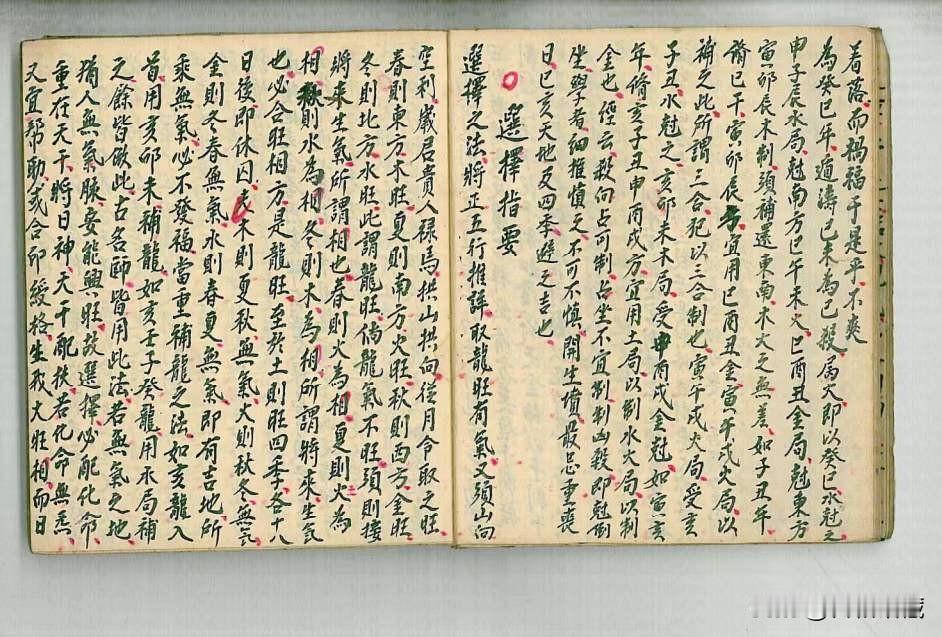 着落而禍福于是乎不爽
為癸巳年遁濤己未為己殺屬火即以癸巳水尅之
申子辰水局尅南方巳午未火巳酉丑金局尅東方
寅卯辰木制頭補還東南木火之無差如子丑年
脩巳午寅卯辰宜用巳酉丑金寅午戌火局以
補之此所謂三合犯以三合制也寅午戌火局受亥
子丑水尅之亥卯未木局受申酉戌金尅如寅亥
年脩亥子丑申酉戌方宜用土局以制水火局以制
金也經云殺向占可制占坐不宜制制凶殺即尅倒
坐學者細推慎之不可不慎開生墳最忌重喪
日巳亥天地及四季避之吉也
選擇指要
選擇之法將正五行推詳取龍旺有氣又須山向
空利歲君貴人祿馬拱山拱向從月令取之旺
春則東方木旺夏則南方火旺秋則西方金旺
冬則北方水旺此謂龍旺倘龍氣不旺頭則接
將來生氣所謂相也春則火為相夏則火為
相秋則水為相冬則木為相所謂將來生氣
也必合旺相方是龍旺至於土則旺四季各十八
日後即休囚矣木則夏秋無氣火則秋冬無氣
金則冬春無氣水則春夏無氣即有吉地所
乘無氣必不發福當重補龍之法如亥龍入
首用亥卯未補龍如亥壬子癸龍用水局補
之餘皆倣此古名師皆用此法若無氣之地
猶人無氣脉安能興旺故選擇必配化命
重在天干將日神天干配扶若化命無炁
又宜幫助或合印綬格生我火旺相而日